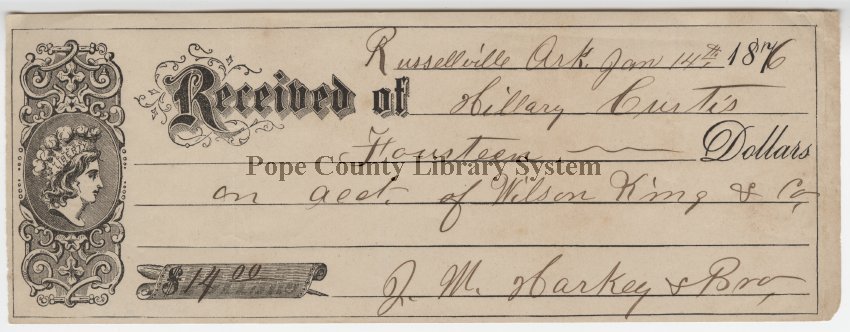 Russellville Ark. Jan 14th, 1876
Received of Hillary Curtis
Fourteen Dollars
Pope County Library System
on acct. of Wilson King & Co,
$14.00
J. M. Harkey & Bro,
LIBERTY